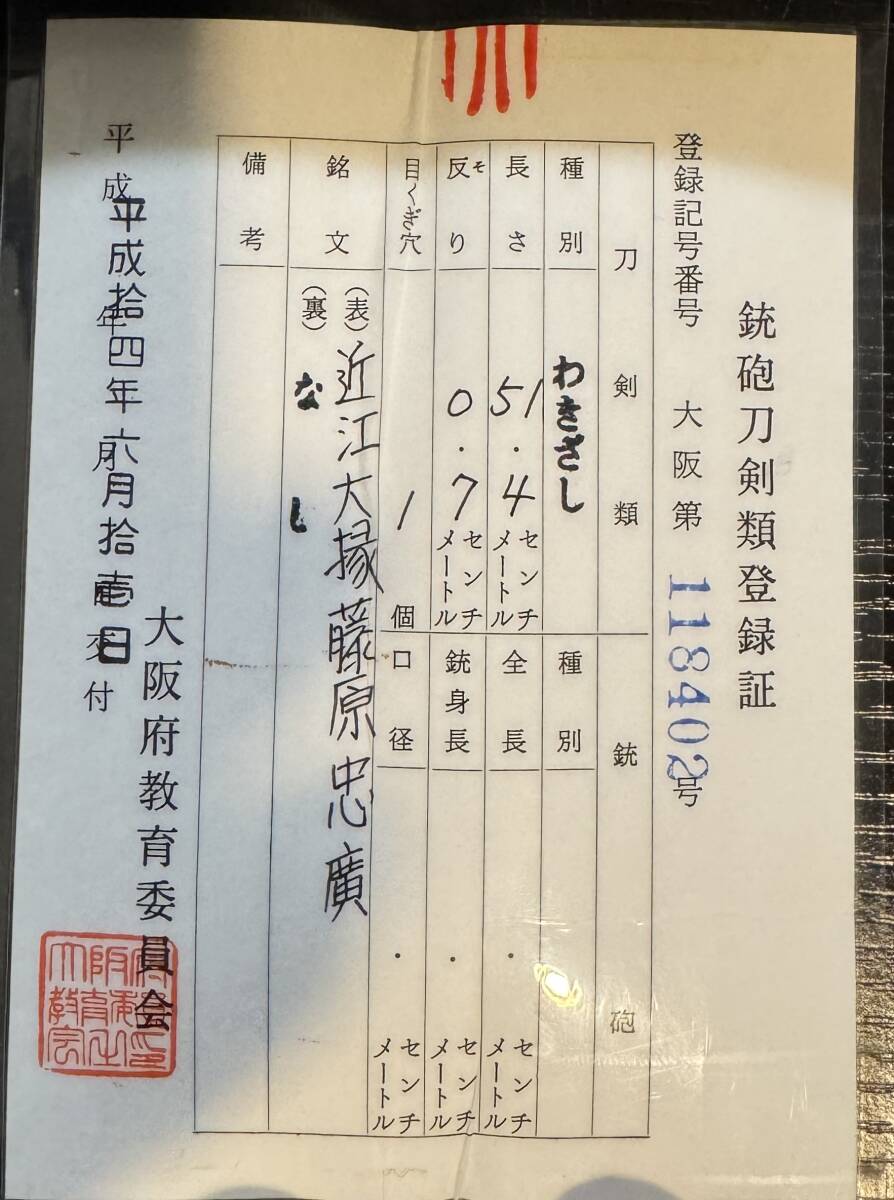 銃砲刀剣類登録証
登録記号番号 大阪第 118402号
刀剣類
種別 わきざし
長さ 51.4 センチメートル
反り そ 0.7 センチメートル
目くぎ穴 1 個
銘文 (表) 近江大掾藤原忠廣
(裏) なし
備考
銃砲
種別
全長 . センチメートル
銃身長 . センチメートル
口径 . センチメートル
平成 年 月 日交付
平成拾四年六月拾壱日
大阪府教育委員会